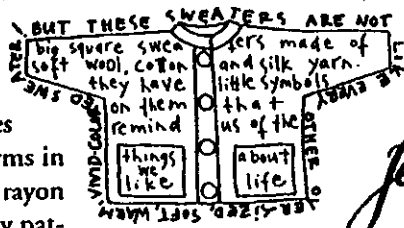 BUT THESE SWEATERS ARE NOT
LIKE EVERY
OTHER
OVER-SIZED, SOFT, WARM,
VIVID-COLORED SWEATER
big square sweaters made of
soft wool, cotton and silk yarn.
they have little symbols
on them that
remind us of the
things
we
like
about
life
es
rms in
rayon
y pat-